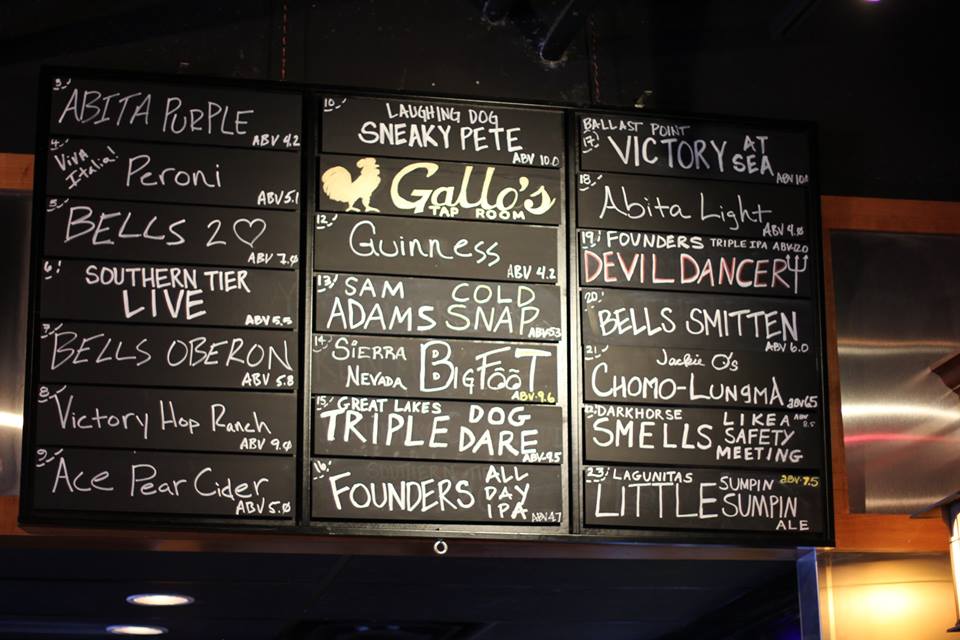 3.
ABITA PURPLE
ABV 4.2
4.
Viva Italia!
Peroni
ABV 5.1
5.
BELLS 2♡
ABV 7.0
6.
SOUTHERN TIER
LIVE
ABV 5.5
7.
BELLS OBERON
ABV 5.8
8.
Victory Hop Ranch
ABV 9.0
9.
Ace Pear Cider
ABV 5.0
10.
LAUGHING DOG
SNEAKY PETE
ABV 10.0
Gallo's
TAP ROOM
12.
Guinness
ABV 4.2
13.
SAM ADAMS
COLD SNAP
ABV 5.3
14.
SIERRA NEVADA
BIGFOOT
ABV 9.6
15.
GREAT LAKES
TRIPLE DOG DARE
ABV 9.5
16.
FOUNDERS
ALL DAY IPA
ABV 4.7
BALLAST POINT
17.
VICTORY AT SEA
ABV 10.0
18.
Abita Light
ABV 4.0
19. FOUNDERS TRIPLE IPA ABV 12.0
DEVIL DANCER
20.
BELLS SMITTEN
ABV 6.0
21.
Jackie O's
CHOMO-LUNGMA
ABV 6.5
22. DARKHORSE
SMELLS LIKE A SAFETY MEETING
ABV 8.5
23. LAGUNITAS
LITTLE SUMPIN SUMPIN
ABV 7.5
ALE